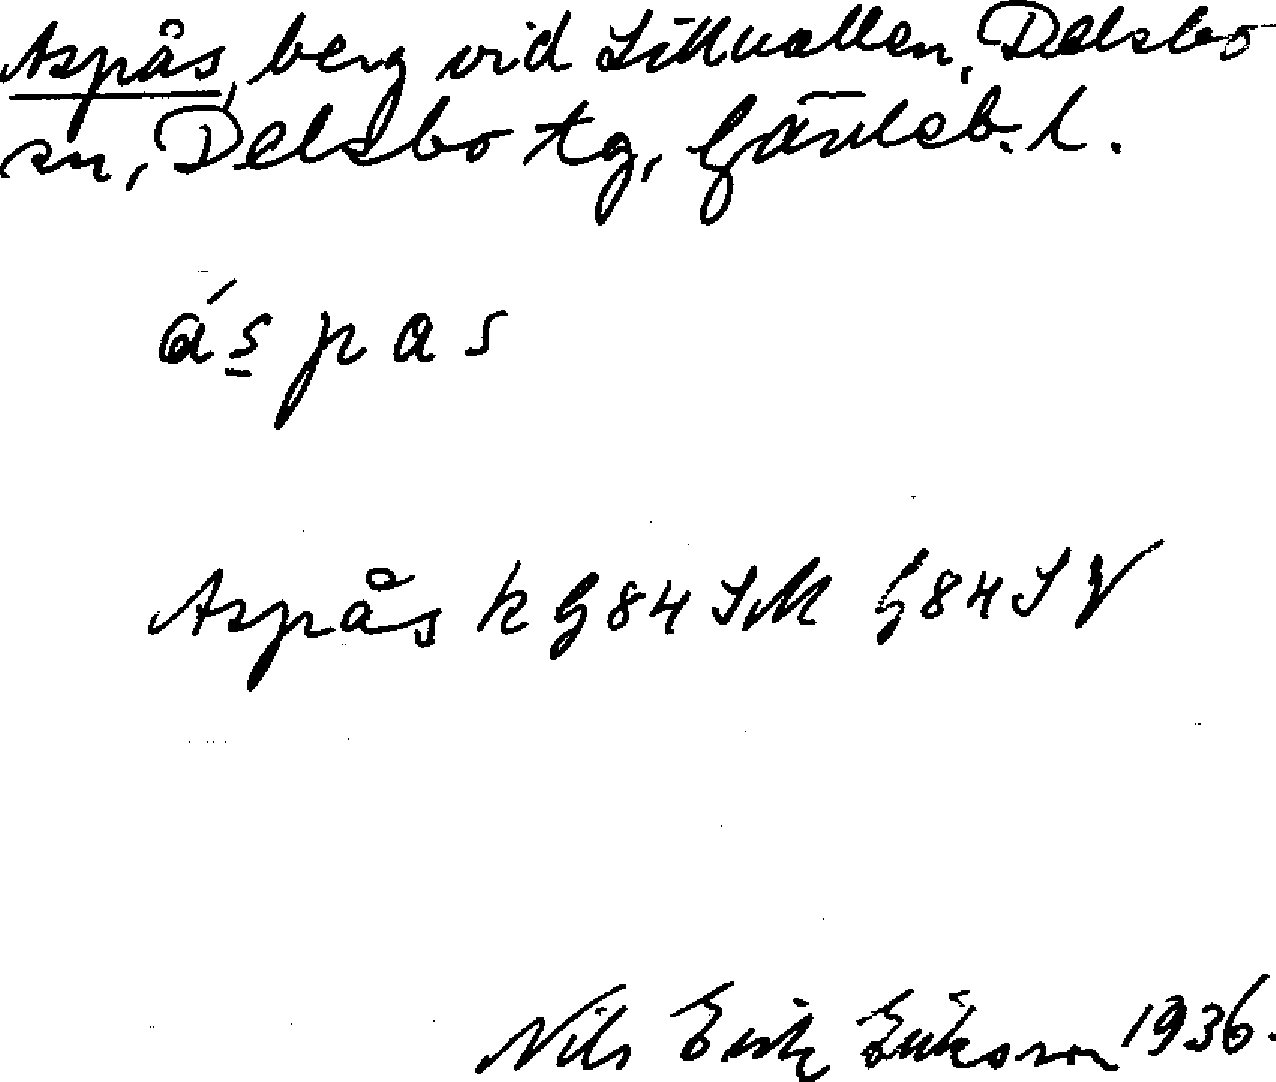 Aspås, berg vid Lillvallen, Delsbo
sn, Delsbo tg, Gävleb. l.
áspas
Aspås k G84 G84 SV
Nils Erik Eriksson 1936.